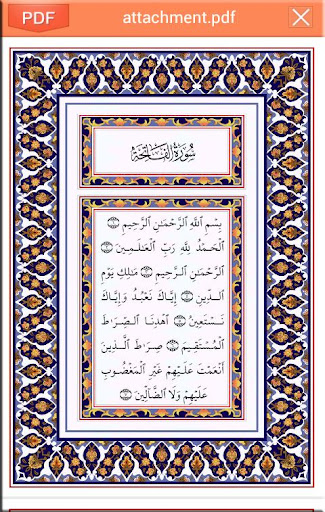 PDF attachment.pdf
سُورَةُ الفَاتِحَةِ
بِسْمِ ٱللَّهِ ٱلرَّحْمَـٰنِ ٱلرَّحِيمِ ۝
ٱلْحَمْدُ لِلَّهِ رَبِّ ٱلْعَـٰلَمِينَ ۝
ٱلرَّحْمَـٰنِ ٱلرَّحِيمِ ۝ مَـٰلِكِ يَوْمِ
ٱلدِّينِ ۝ إِيَّاكَ نَعْبُدُ وَإِيَّاكَ
نَسْتَعِينُ ۝ ٱهْدِنَا ٱلصِّرَٰطَ
ٱلْمُسْتَقِيمَ ۝ صِرَٰطَ ٱلَّذِينَ
أَنْعَمْتَ عَلَيْهِمْ غَيْرِ ٱلْمَغْضُوبِ
عَلَيْهِمْ وَلَا ٱلضَّآلِّينَ ۝